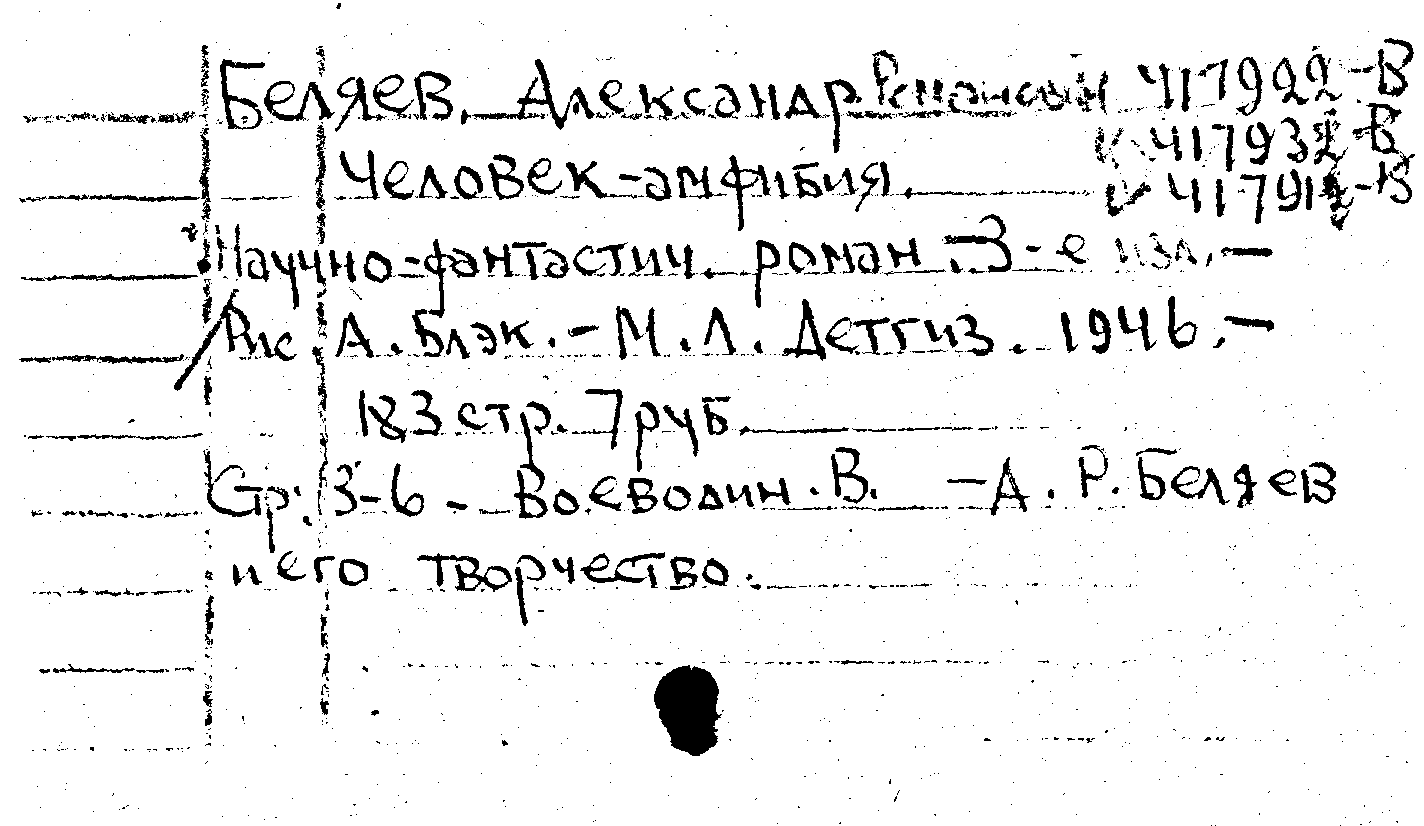 Беляев, Александр Романович 417922-В
К 417932-В
Человек-амфибия. 41791-В
Научно-фантастич. роман.-3-е изд.-
Рис. А. Блэк.-М.Л. Детгиз. 1946.-
183 стр. 7 руб.
Стр: 3-6 - Воеводин. В. -А. Р. Беляев
и его творчество.